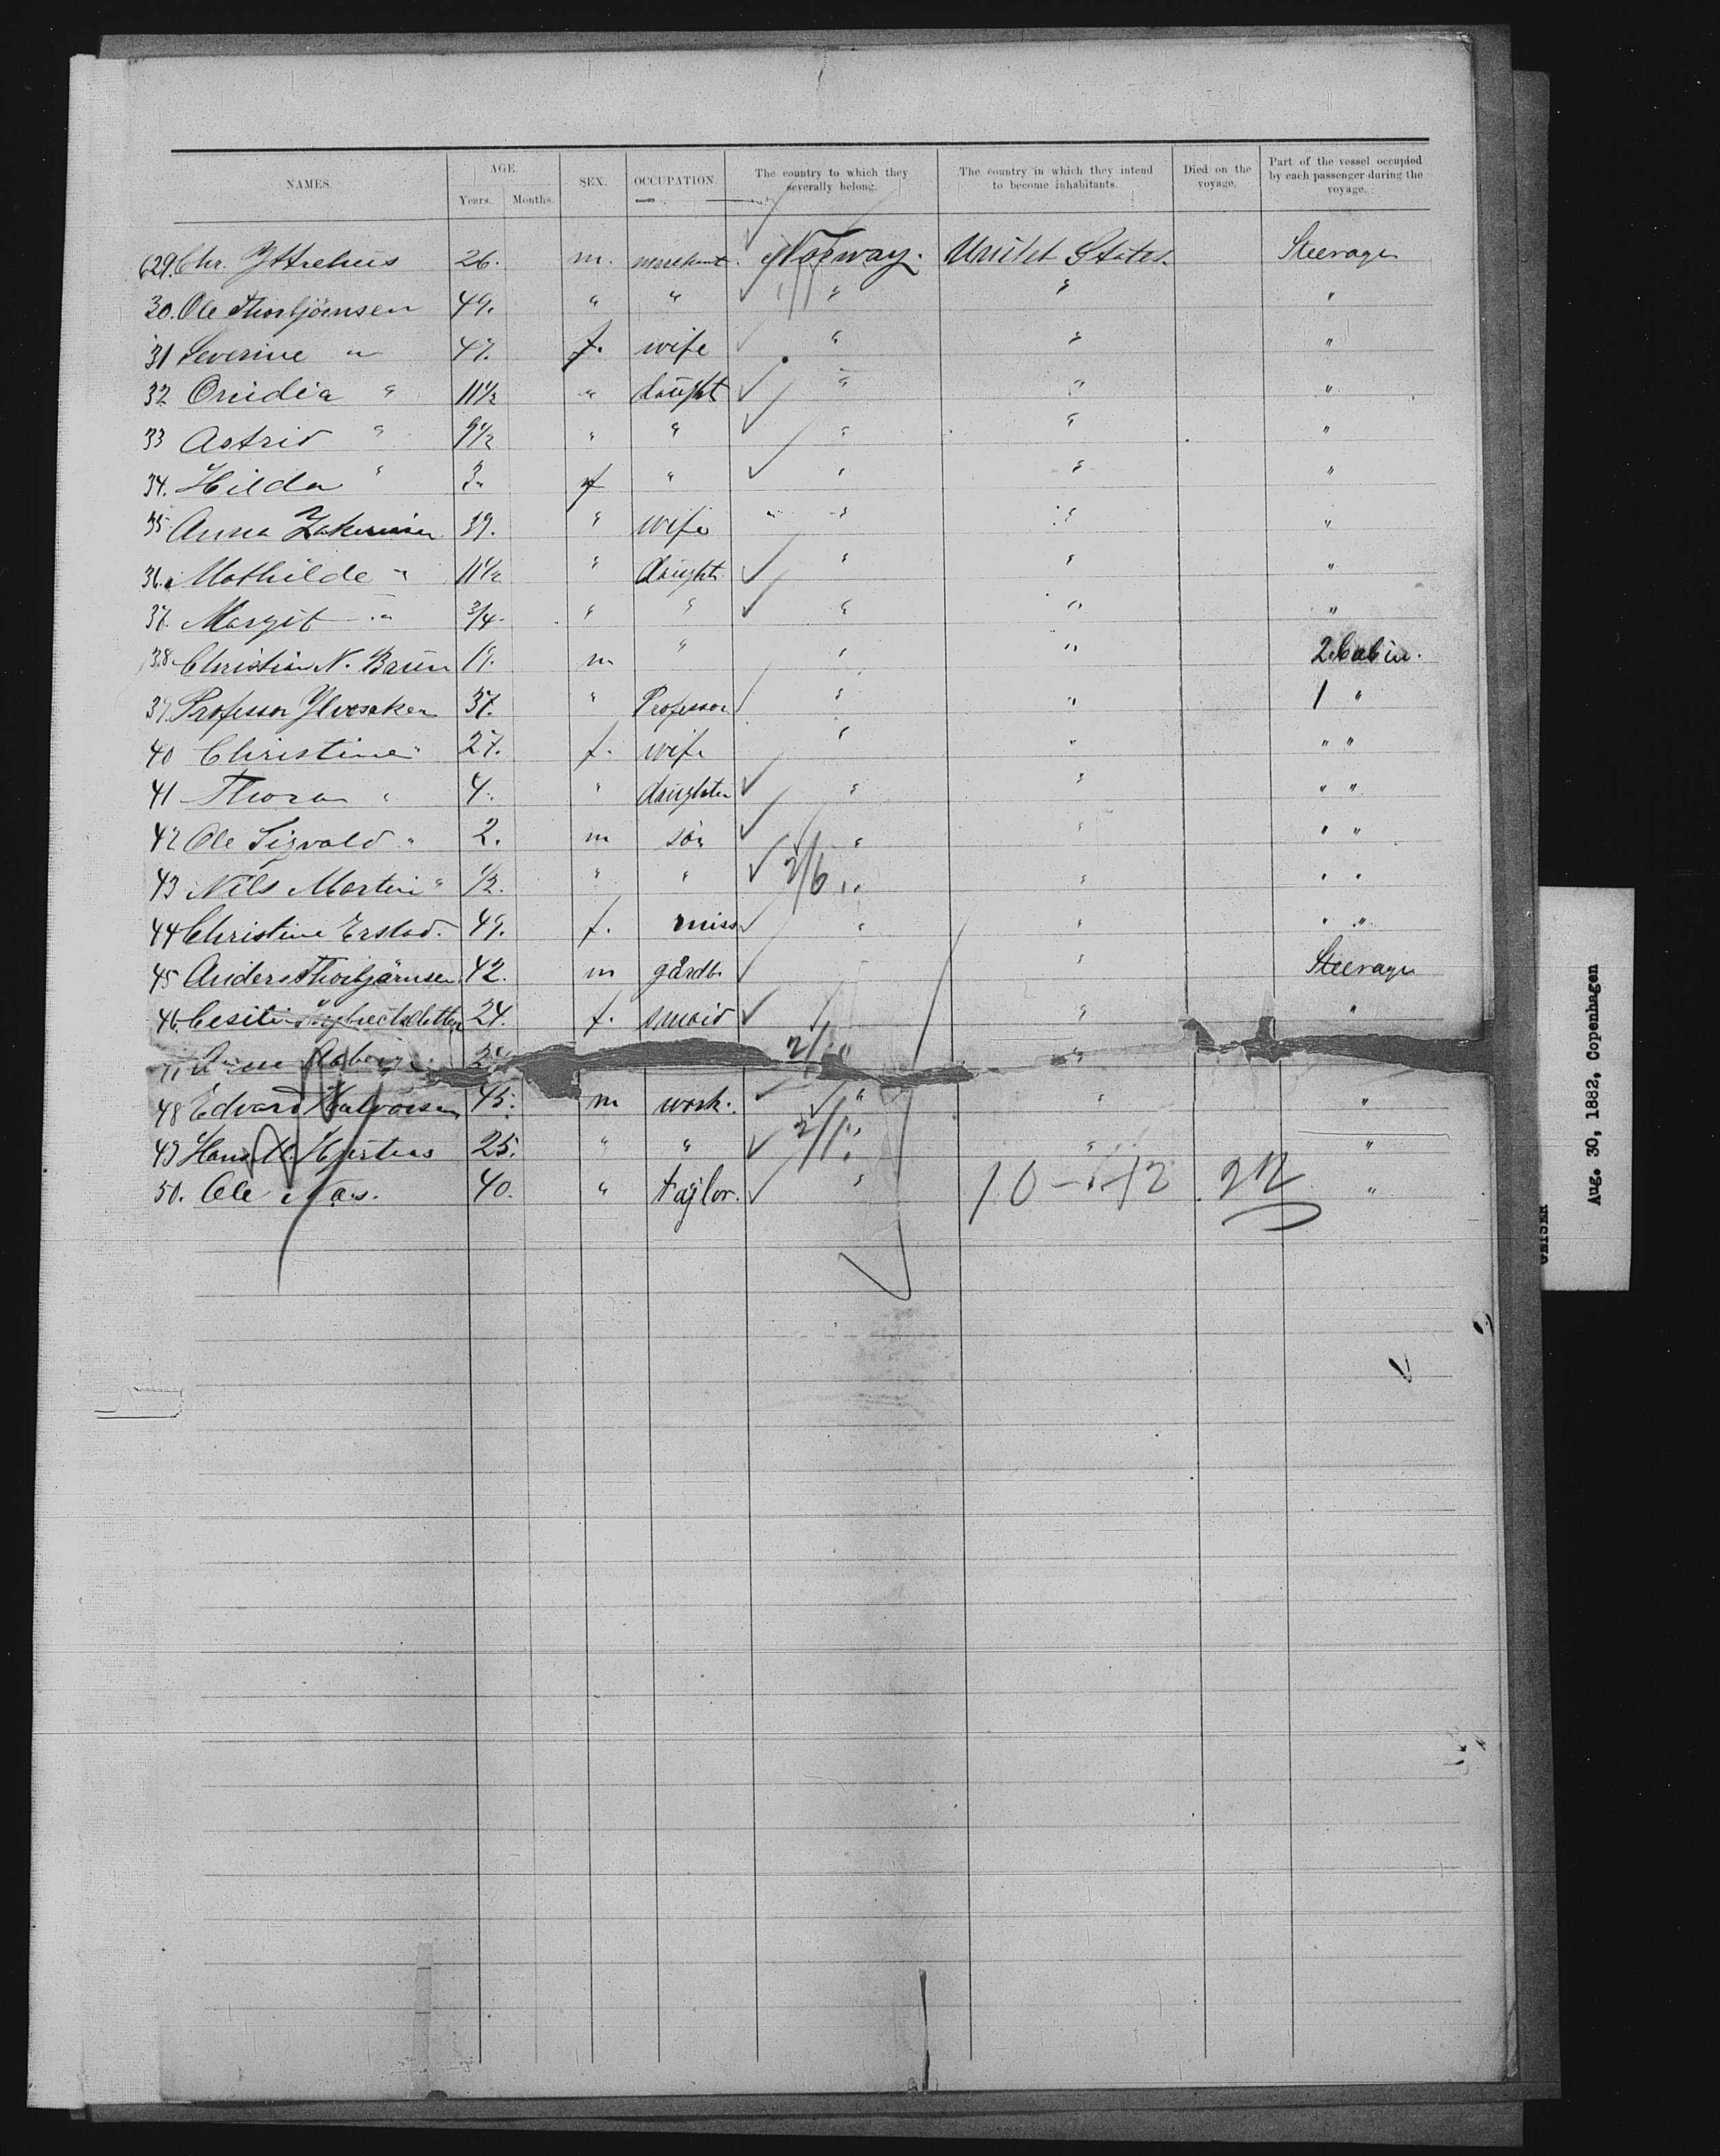 NAMES. AGE. Years. Months. SEX. OCCUPATION. The country to which they severally belong. The country in which they intend to become inhabitants. Died on the voyage. Part of the vessel occupied by each passenger during the voyage.
629. Chr. Yttrehus 26. m. merchant. Norway. United States. Steerage
30. Ole Thorbjörnsen 49. " " " " "
31 Severine " 47. f. wife " " "
32 Ovidia " 11 1/2 " daught " " "
33 Astrid " 9 1/2 " " " " "
34. Hilda " 3 " f " " " "
35 Anna 39. " wife " " "
36. Mathilde " 11 1/2 " daught. " " "
37. Margit " 3/4 " " " " "
38. Christian N. Bruun 19. m " " " 2 Cabin.
39. Professor Ylvesaker 37. " Professor " " 1 "
40 Christine " 27. f. wife " " " "
41 Thora " 4. " daughter " " " "
42 Ole Sigvald " 2. m sön " " " "
43 Nils Martin " 1/2. " " 2/6 " " " "
44 Christine Erstad. 49. f. miss " " " "
45 Anders Thorbjörnsen 42. m gårdb. " " Steerage
46. 24. f. smaid " " "
"
48 Edvard Halvorsen 45. m work. " " "
49 Hans M. Hjertaas 25. " " 2/1 " " "
50. Ole Næs. 40. " taylor. " "
Aug. 30, 1882, Copenhagen
GEISER